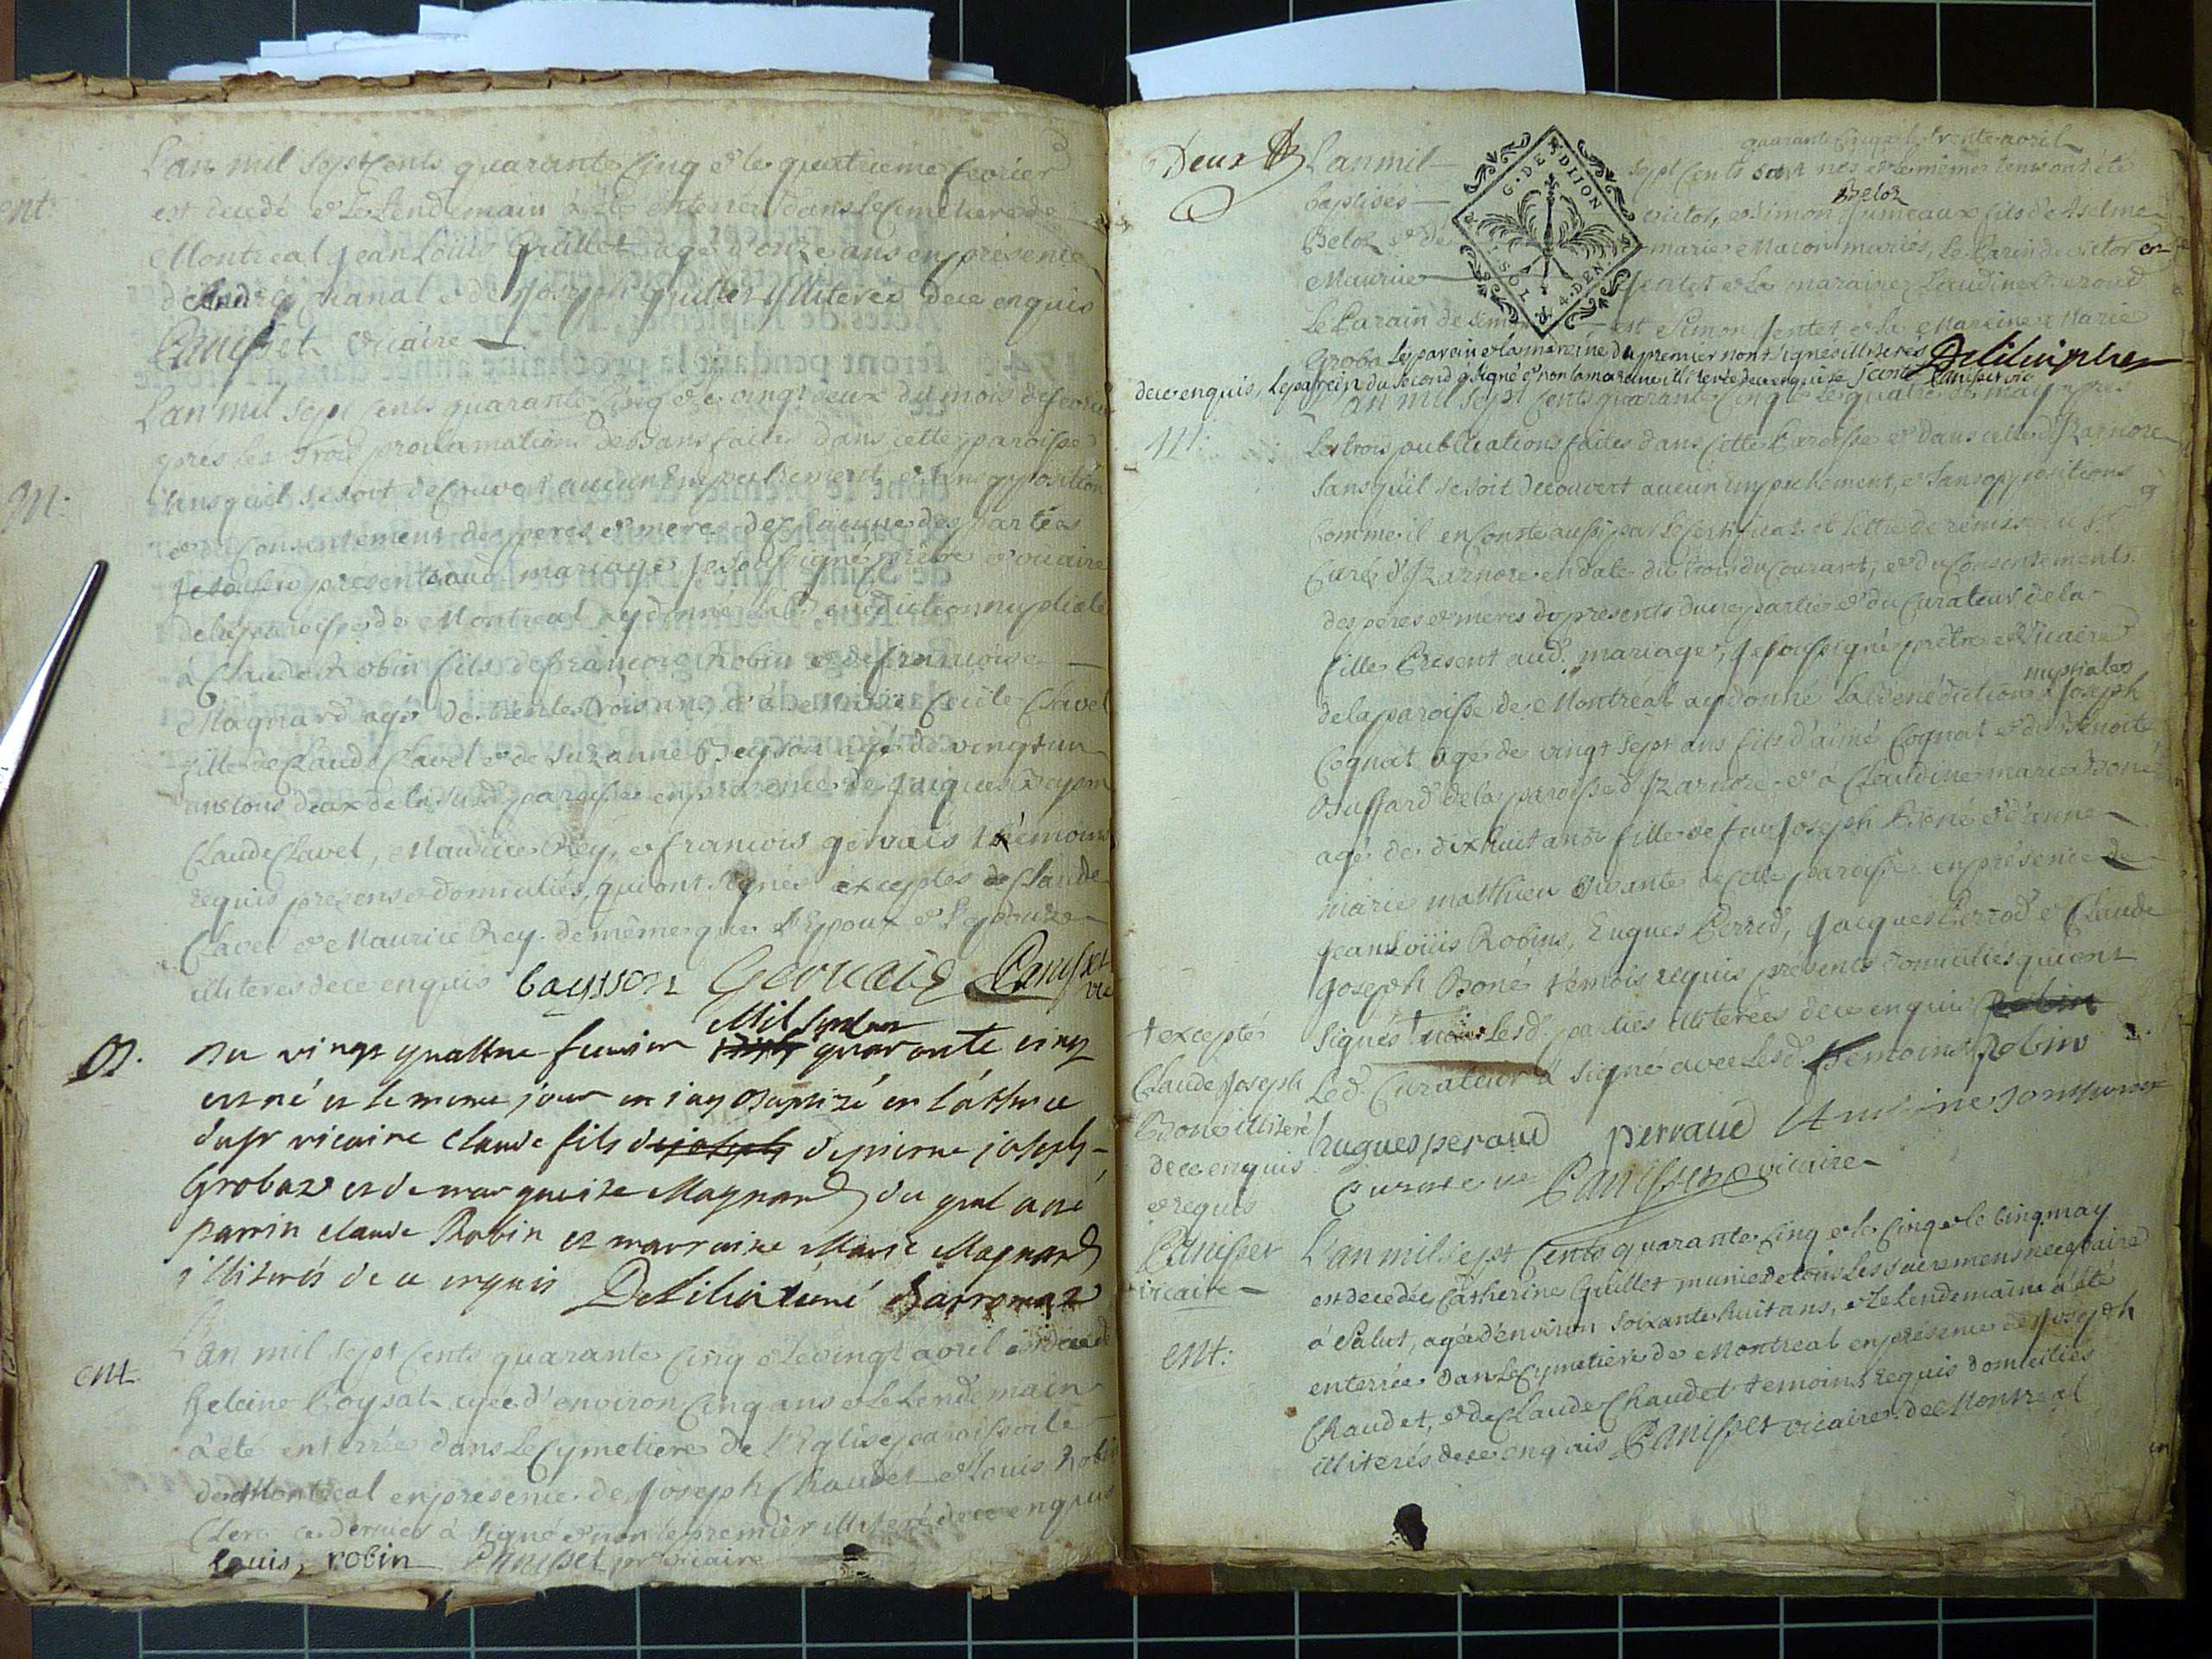 L'an mil sept cents quarante cinq & le quatrieme fevrier
ent.
est decedé & le lendemain a été enterré dans le cimetiere de
Montreal Jean Loüis Guillet agé d'onze ans en présence
d'André & de Joseph Guillet illiterés de ce enquis
Panisset vicaire
L'an mil sept cents quarante cinq & le vingt deux du mois de fevrier
apres les trois proclamations faites dans cette paroisse
M:
sans quil se soit decouvert aucun Empechement & sans opposition
& du consentement des peres & meres de chacune des parties
presents aud. mariage je soussigné prêtre & vicaire
de la paroisse de Montreal ay donné la bénédiction nuptiale
à Claude Robin fils de françois Robin & de françoise
Magnard agé de trente trois ans, & à Cecile Clavel
fille de Claude Clavel & de Suzanne Beysson agé de vingt un
ans tous deux de la susd. paroisse en presence de Jaiques Baysson
Claude Clavel, Maurice Rey, & francois gervais témoins
requis presens & domiciliés, qui ont signés exceptés Claude
Clavel & Maurice Rey. de même que l'Epoux & l'epouse
illiteres de ce enquis baysson Gervais Panisset vic
Mil sept cent
B. Du vingt quattre fevrier quarante cinq
est né et le meme jour en jay Baptizé en l'absence
du Sr vicaire Claude fils de pierre joseph
Grobaz et de marguerite Magnard du quel a été
parrin claude Robin et marraine Marie Magnard
illiterés de ce enquis Delilia curé
ent. L'an mil sept cents quarante cinq & le vingt avril est decedé
heleine Coysat agée d'environ cinq ans & le Lendemain
à été enterrée dans le Cymetiere de l'Eglise paroissiale
de Montreal en presence de Joseph Chaudet & Louis Robin
Clerc ce dernier à signé & non le premier illiteré de ce enquis
Louis, robin Panisset pr vicaire
Deux B L'an mil
quarante cinq & le trente avril
sept cents sont nés & le même tems ont été
baptisés
Beloz
victor, & Simon Jumeaux fils d'Aselme
Beloz & de
marie Macon mariés, Le Parin de victor en
Maurice
Jentet & la maraine Claudine
G. DE DIJON
SOL. 4. DEN.
Le Parain de Simon est Simon Jentet & la Mareine Marie
Groba Le parein & la mareine du premier n'ont signés illiterés
de ce enquis, le parein du second a signé & non la maraine illiterée de ce enquise Jante Panisset vic
L'an mil sept cents quarante cinq & le quatre de may apres
M: Les trois publications faites dans cette Paroisse & dans celle d'Izarnore
sans qu'il se soit decouvert aucun Empechement, & sans oppositions
comme il en conste aussi par le Certificat et lettre de remise du Sr
Curé d'Izarnore en date du trois du Courant, & du Consentements
des peres & meres presents d'une partie & du Curateur de la
fille Present aud. mariage, je soussigné prêtre & Vicaire
nuptiales
de la paroisse de Montréal ay donné La Bénédiction à Joseph
Cognat agé de vingt sept ans fils d'aimé Cognat & de Benoite
Buffard de la paroisse d'Izarnore & à Claudine marie Boné
agé de dix huit ans fille de feu Joseph Boné & d'anne
marie matthieu vivante de cette paroisse en présence de
Jean Loüis Robins, Eugues Perrod, Jacques Perrod & Claude
Joseph Boné témois requis présents domiciliés qui ont
signés † Lesd. parties illiterées de ce enquis
Led. Curateur à signé avec Lesd. temoins Robins
† excepté
Claude Joseph
Boné illiteré
de ce enquis
& requis
Panisset
vicaire
hugues peraud perraud
Panisset vicaire
L'an mil sept cents quarante cinq & le Cinq & le cinq may
est decedée Catherine Guillet munie de tous les sacremens necessaire
à Salut, agée d'environ soixante huit ans, & le lendemaine à été
ent: enterrée dans le Cymetiere de Montreal en présence de Joseph
Chaudet, & de Claude Chaudet temoins requis domiciliés
illiterés de ce enquis Panisset vicaire de Montreal